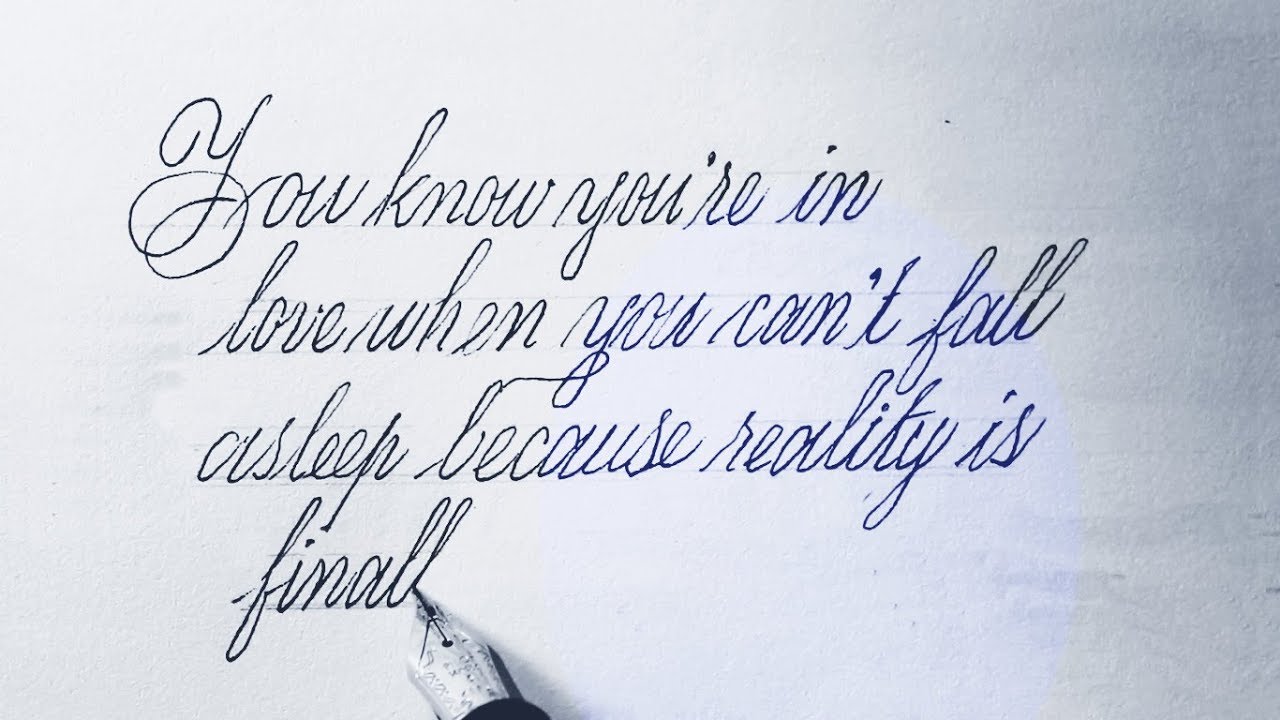 You know you're in
love when you can't fall
asleep because reality is
finall